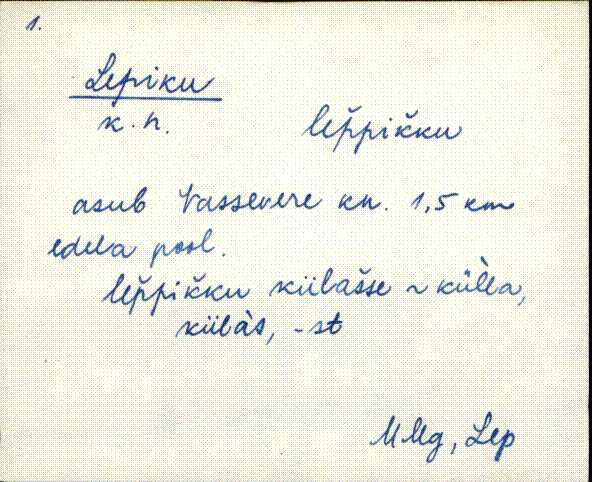 1.
Lepiku
k.n. lep̌pik̆ku
asub Vassevere kn. 1,5 km
edela pool.
lep̌pik̆ku külas̆se ~ kül̀la,
külàs, -st
MMg, Lep